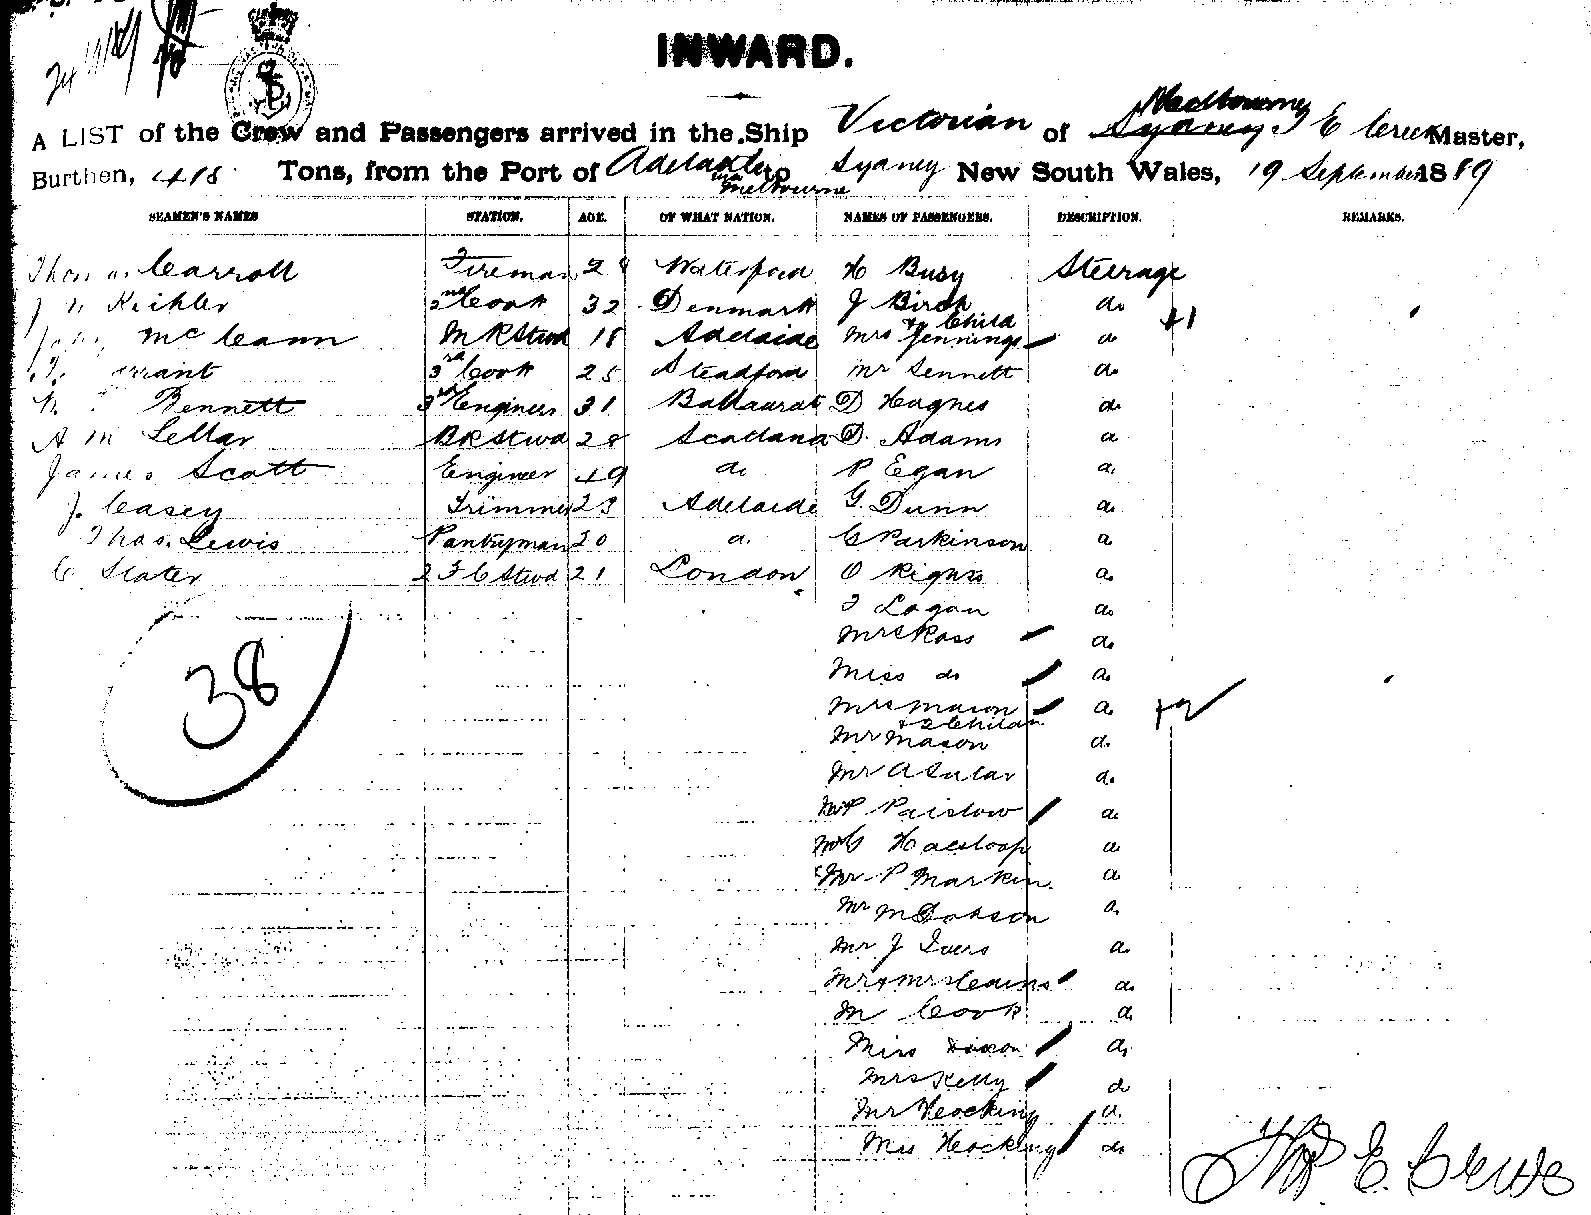 INWARD.
Melbourne
A LIST of the Crew and Passengers arrived in the Ship Victorian of Sydney E Creer Master,
Burthen, 418 Tons, from the Port of Adelaide to Sydney New South Wales, 19 September 1889
via Melbourne
SEAMEN'S NAMES STATION. AGE. OF WHAT NATION. NAMES OF PASSENGERS. DESCRIPTION. REMARKS.
Carroll Fireman 28 Waterford H Busy Steerage
Keihler 2nd Cook 32 Denmark J Birch do
& Child +1
John McCann M R Stwd 18 Adelaide Mrs Jennings do
3rd Cook 25 Steadford Mr Sennett do
Bennett 3rd Engineer 31 Ballaarat D Hagnes do
A M Sellar B R Stwd 28 Scotland D. Adams do
James Scott Engineer 49 do P Egan do
J. Casey Trimmer 23 Adelaide G. Dunn do
Thos. Lewis Pantryman 20 do C Parkinson do
C Slater 2 F C Stwd 21 London O do
T Logan do
38
Mrs Ross do
Miss do do
Mrs Mason do +2
+ 2 Childn
Mr Mason do
Mr A do
P Paislow do
do
Mr P Markin do
Mr M Dobson do
Mr J do
Mr & Mrs Cairns do
M Cook do
Miss Dixon do
Mrs Kelly do
Mr Hocking do
Mrs Hocking do